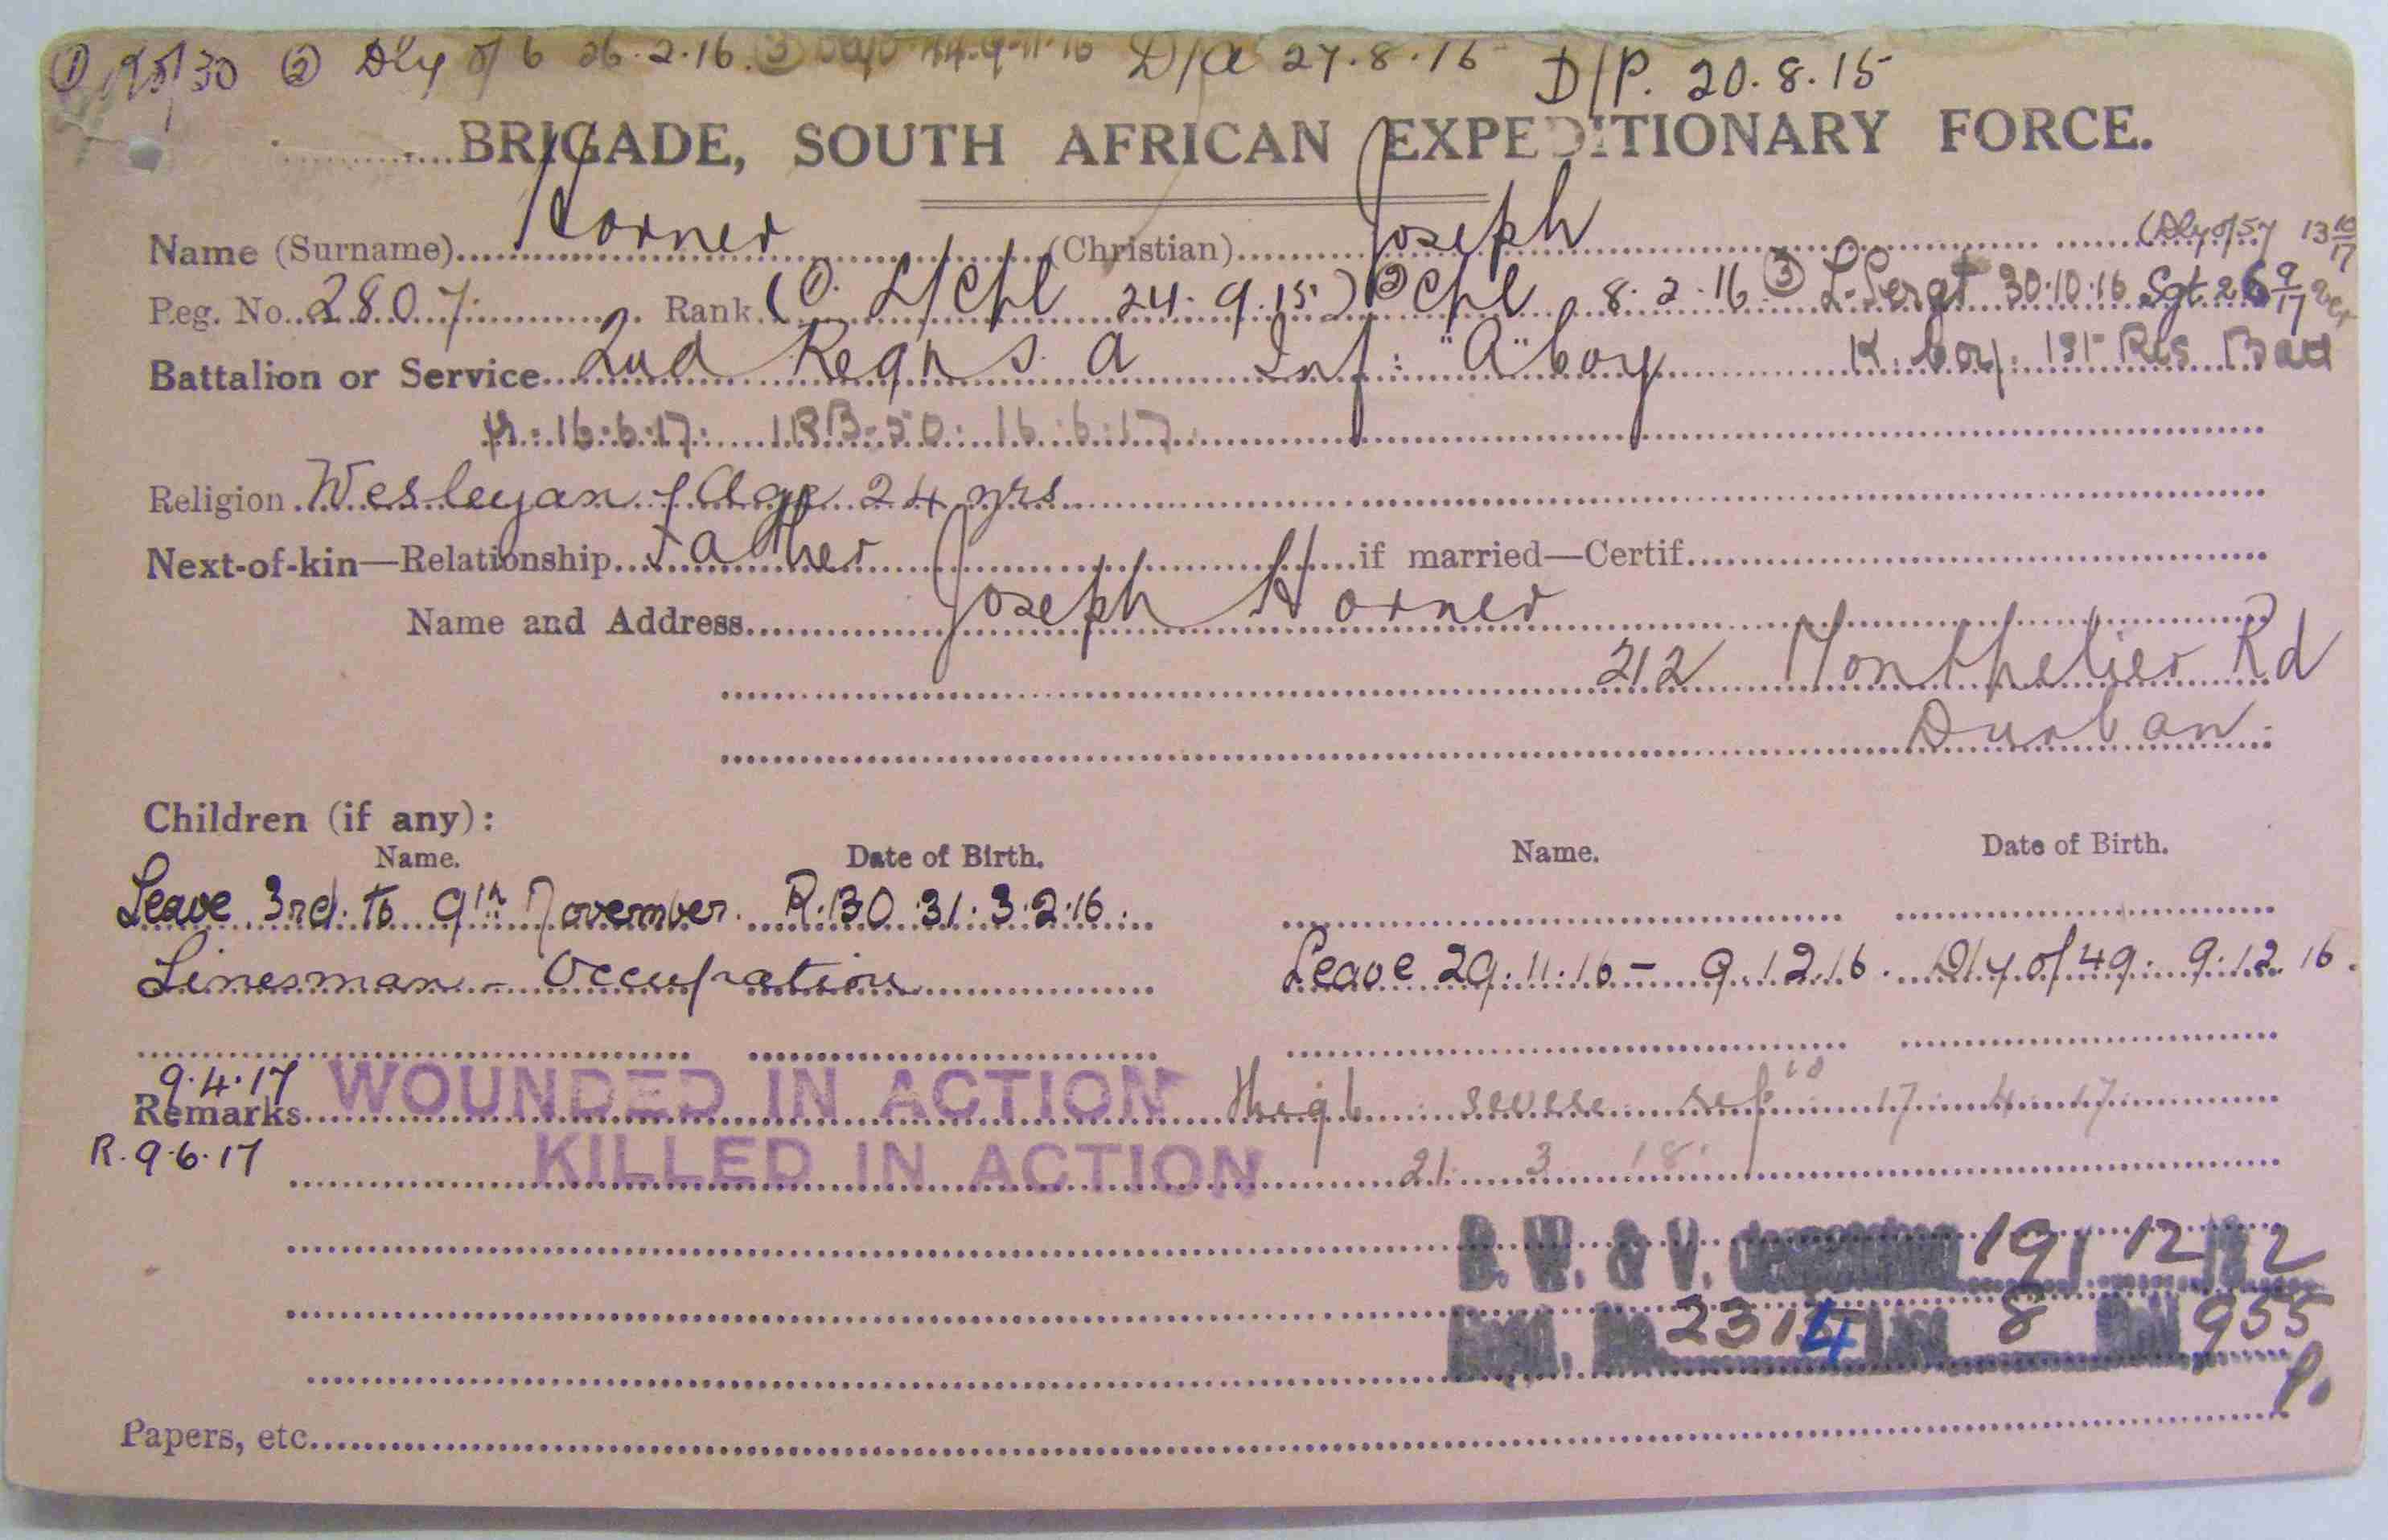 ① ② Dly of 6 26.2.16 ③ D/A 27.8.15 D/P. 20.8.15
BRIGADE, SOUTH AFRICAN EXPEDITIONARY FORCE.
Name (Surname) Horner (Christian) Joseph (Dly of 57 13 10/17
Reg. No. 2807 Rank (① L/Cpl 24.9.15) ② Cpl 8.2.16 ③ L-Sergt 30.10.16 Sgt 26 9/17
Battalion or Service 2nd Regt S. A Inf: "A" Coy K. Coy. 1st Res Batt
16.6.17. 1RB-50. 16.6.17.
Religion Wesleyan Age 24 yrs
Next-of-kin—Relationship Father if married—Certif.
Name and Address Joseph Horner
212 Montpelier Rd
Durban.
Children (if any):
Name. Date of Birth. Name. Date of Birth.
Leave 3rd. to 9th November. R.BO.31.3.2.16.
Linesman - Occupation Leave 29.11.16 - 9.12.16. Dly of 49. 9.12.16.
9.4.17
Remarks WOUNDED IN ACTION Thigh severe 17 4 17
R. 9.6.17
KILLED IN ACTION 21. 3. 18.
B. W. & V. 19/12/22
No. 2314 8 955
Papers, etc.